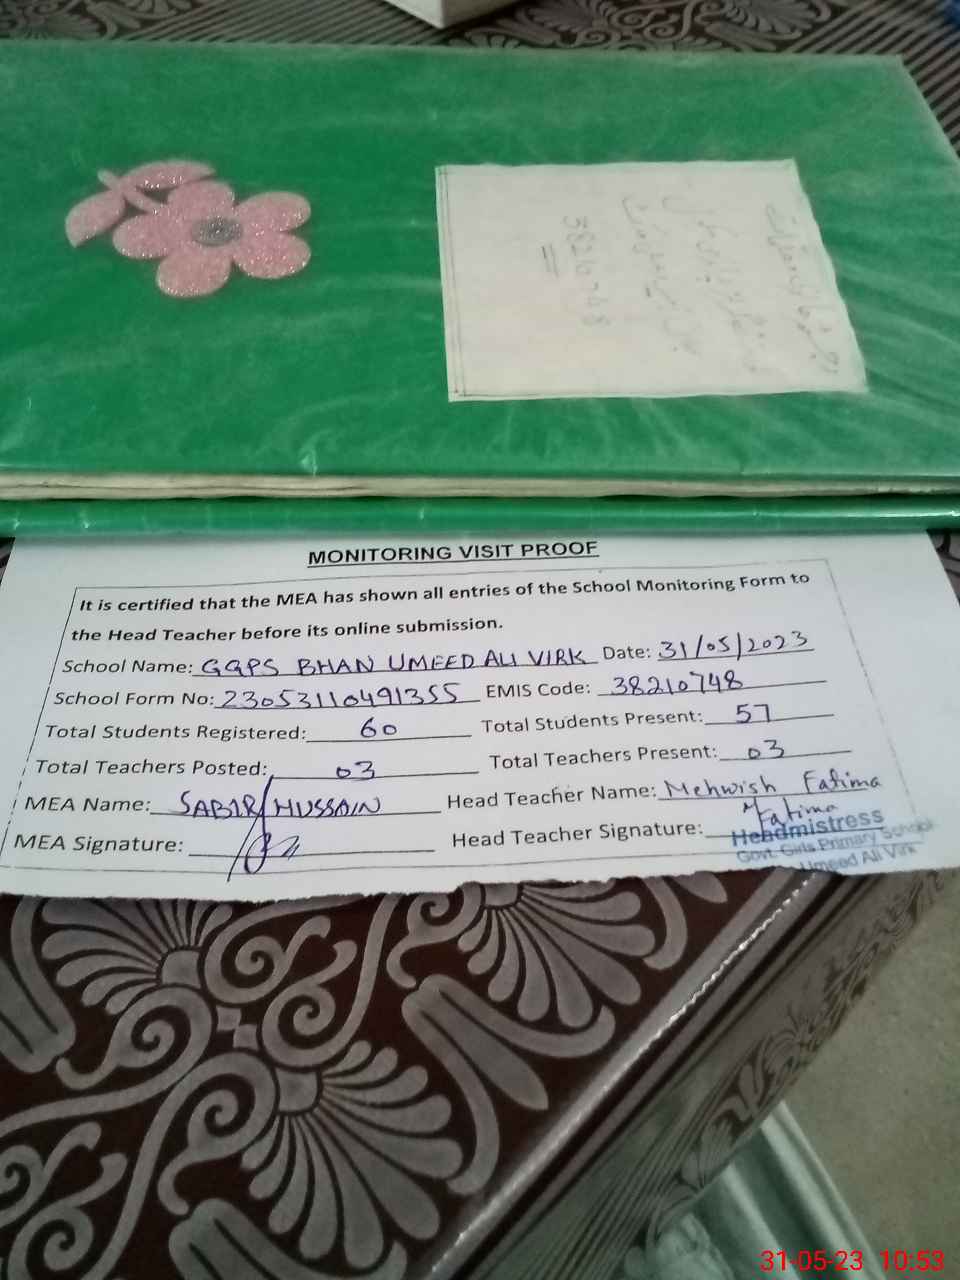 38210748
MONITORING VISIT PROOF
It is certified that the MEA has shown all entries of the School Monitoring Form to
the Head Teacher before its online submission.
School Name: GGPS BHAN UMEED ALI VIRK Date: 31/05/2023
School Form No: 23053110491355 EMIS Code: 38210748
Total Students Registered: 60 Total Students Present: 57
Total Teachers Posted: 03 Total Teachers Present: 03
MEA Name: SABIR HUSSAIN Head Teacher Name: Mehwish Fatima
MEA Signature: Head Teacher Signature: Fatima
Headmistress
Govt. Girls Primary School
Umeed Ali Virk
31-05-23 10:53